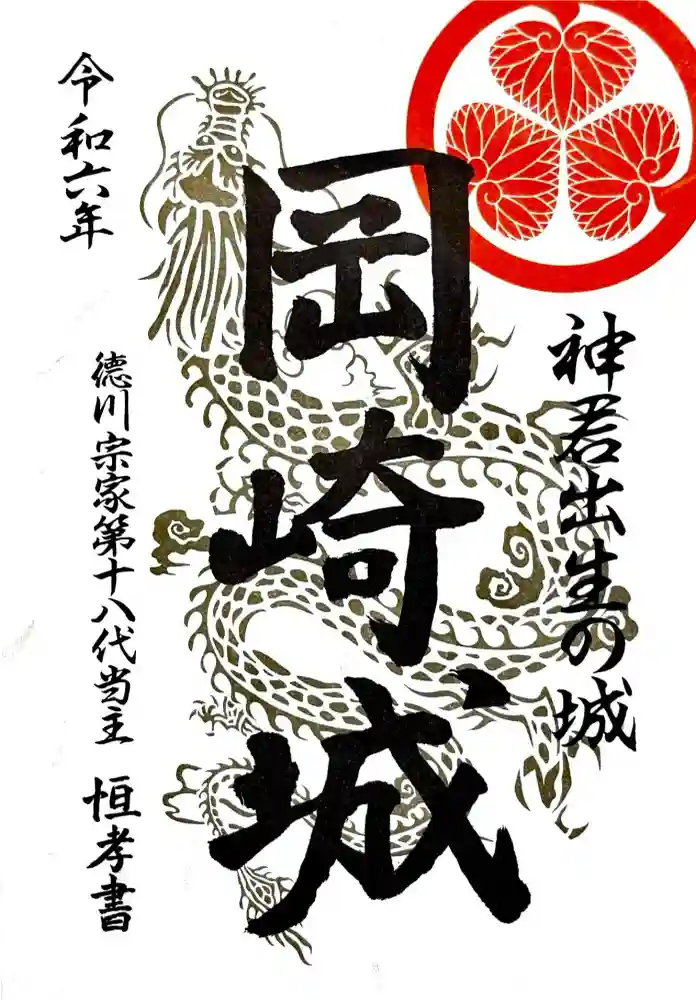 神君出生の城
岡崎城
令和六年
徳川宗家第十八代当主 恒孝書